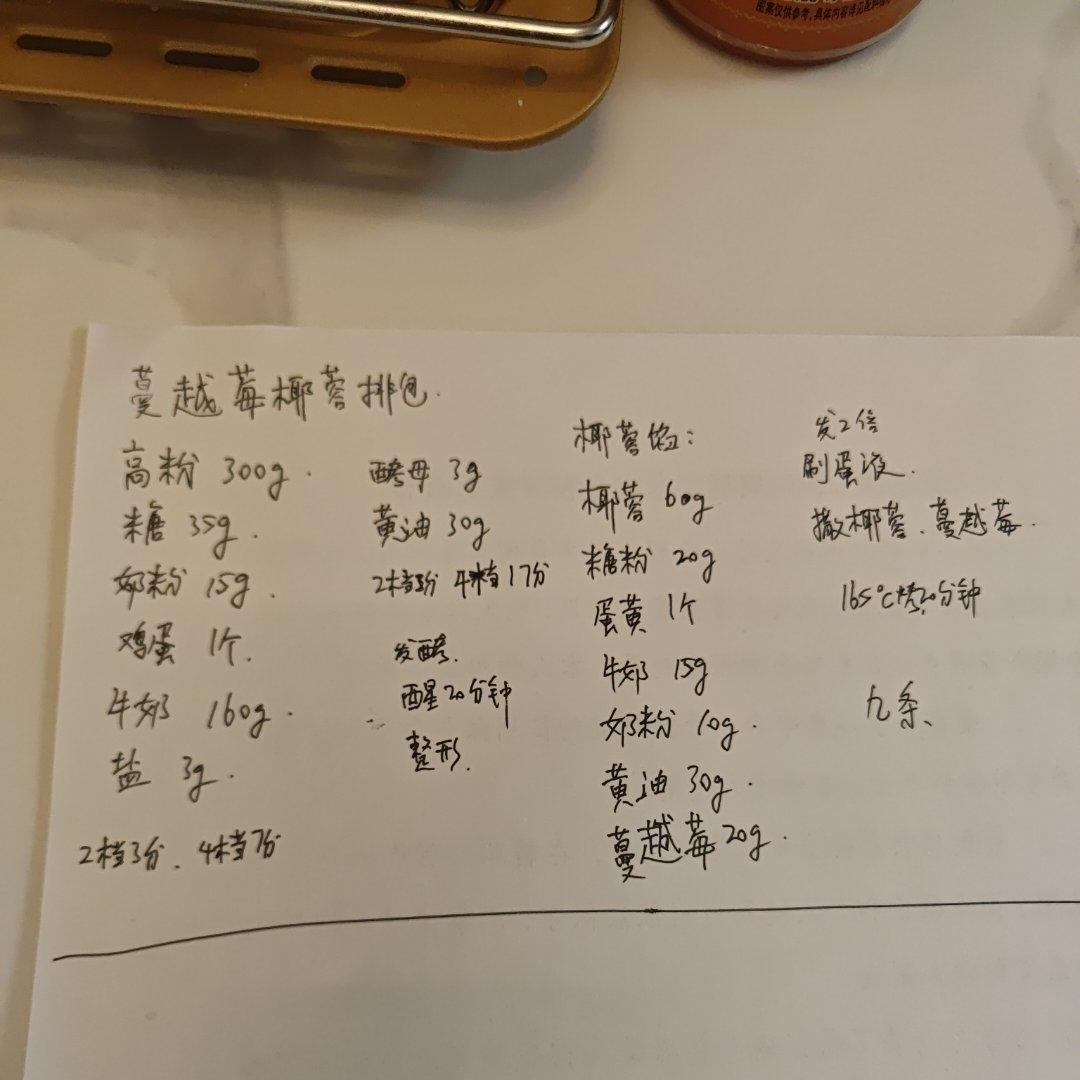 图案仅供参考,具体内容请见配料
蔓越莓椰蓉排包.
高粉 300g.
糖 35g.
奶粉 15g.
鸡蛋 1个.
牛奶 160g.
盐 3g.
2档3分、4档7分
酵母 3g
黄油 30g
4档17分
发酵.
醒20分钟
整形.
椰蓉馅:
椰蓉 60g
糖粉 20g
蛋黄 1个
牛奶 15g
奶粉 10g.
黄油 30g.
蔓越莓 20g.
发2倍
刷蛋液.
撒椰蓉、蔓越莓.
165℃烤20分钟
九条、